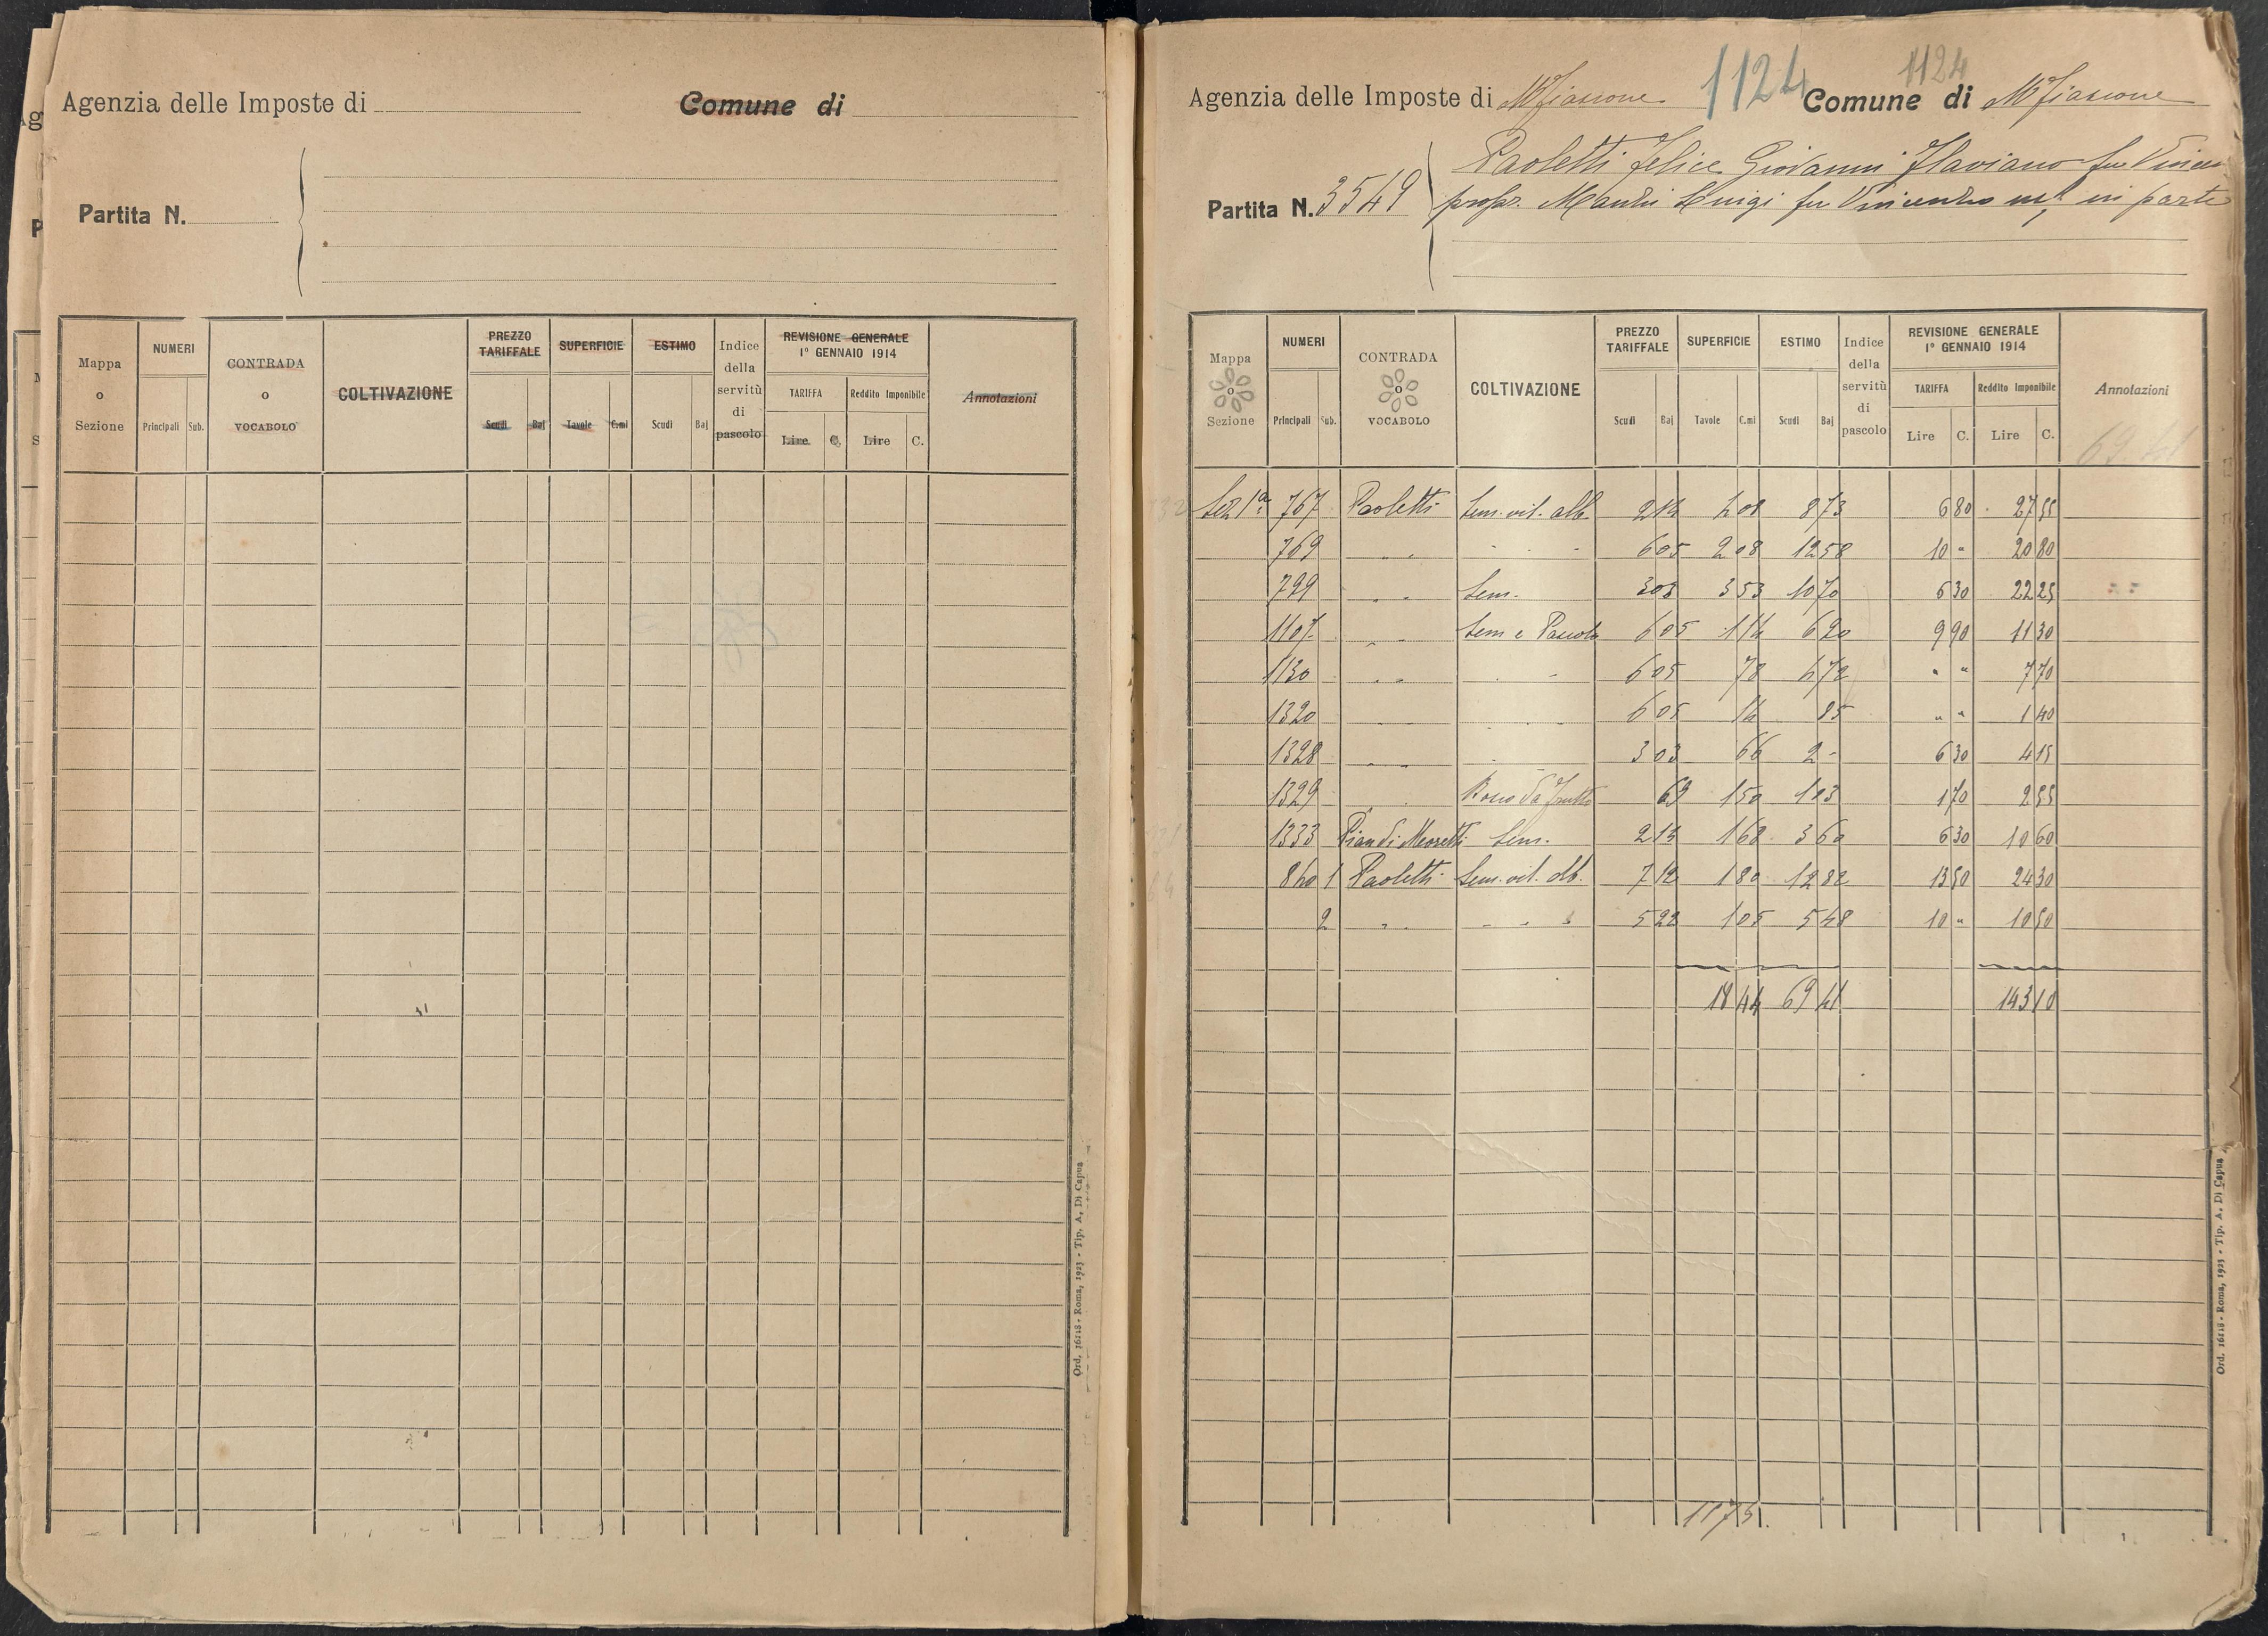 Agenzia delle Imposte di
Comune di
Partita N.
Mappa o Sezione | NUMERI | CONTRADA o VOCABOLO | COLTIVAZIONE | PREZZO TARIFFALE | SUPERFICIE | ESTIMO | Indice della servitù di pascolo | REVISIONE GENERALE 1° GENNAIO 1914 | Annotazioni
TARIFFA | Reddito Imponibile
Principali | Sub. | Scudi | Baj | Tavole | C.mi | Scudi | Baj | Lire | C. | Lire | C.
Ord. 16118 - Roma, 1923 - Tip. A. Di Capua
1124 1124
Agenzia delle Imposte di Mfiascone Comune di Mfiascone
Paoletti Felice Giovanni Flaviano fu Vincen
Partita N. 3549 propr. Luigi fu Vincenzo in parte
Mappa o Sezione | NUMERI | CONTRADA o VOCABOLO | COLTIVAZIONE | PREZZO TARIFFALE | SUPERFICIE | ESTIMO | Indice della servitù di pascolo | REVISIONE GENERALE 1° GENNAIO 1914 | Annotazioni
TARIFFA | Reddito Imponibile
Principali | Sub. | Scudi | Baj | Tavole | C.mi | Scudi | Baj | Lire | C. | Lire | C.
69 41
Sez 1ª | 767 | Paoletti | Sem. vit. alb. | 2 14 | 4 08 | 8 73 | 6 80 | 27 55
769 | " " | " " " | 6 05 | 2 08 | 12 58 | 10 " | 20 80
799 | " " | Sem. | 3 03 | 3 53 | 10 70 | 6 30 | 22 25
1107 | " " | Sem e Pascolo | 6 05 | 1 14 | 6 90 | 9 90 | 11 30
1130 | " " | " " | 6 05 | 78 | 4 72 | " " | 7 70
1320 | " " | " " | 6 05 | 14 | 85 | " " | 1 40
1328 | " " | " | 3 03 | 66 | 2 - | 6 30 | 4 15
1329 | " " | Bosco da frutto | 69 | 1 50 | 1 03 | 1 70 | 2 55
1333 | Pian di Meoretti | Sem. | 2 14 | 1 68 | 3 60 | 6 30 | 10 60
840 | 1 | Paoletti | Sem. vit. alb. | 7 12 | 1 80 | 12 82 | 13 50 | 24 30
2 | " " | " " " | 5 22 | 1 05 | 5 48 | 10 " | 10 50
18 44 | 69 41 | 143 10
1175.
Ord. 16118 - Roma, 1923 - Tip. A. Di Capua